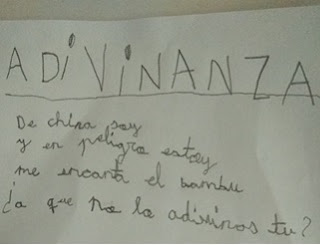 ADiViNANZA
De china soy
y en peligro estoy
me encanta el bambu
¿a que no la adivinas tu?